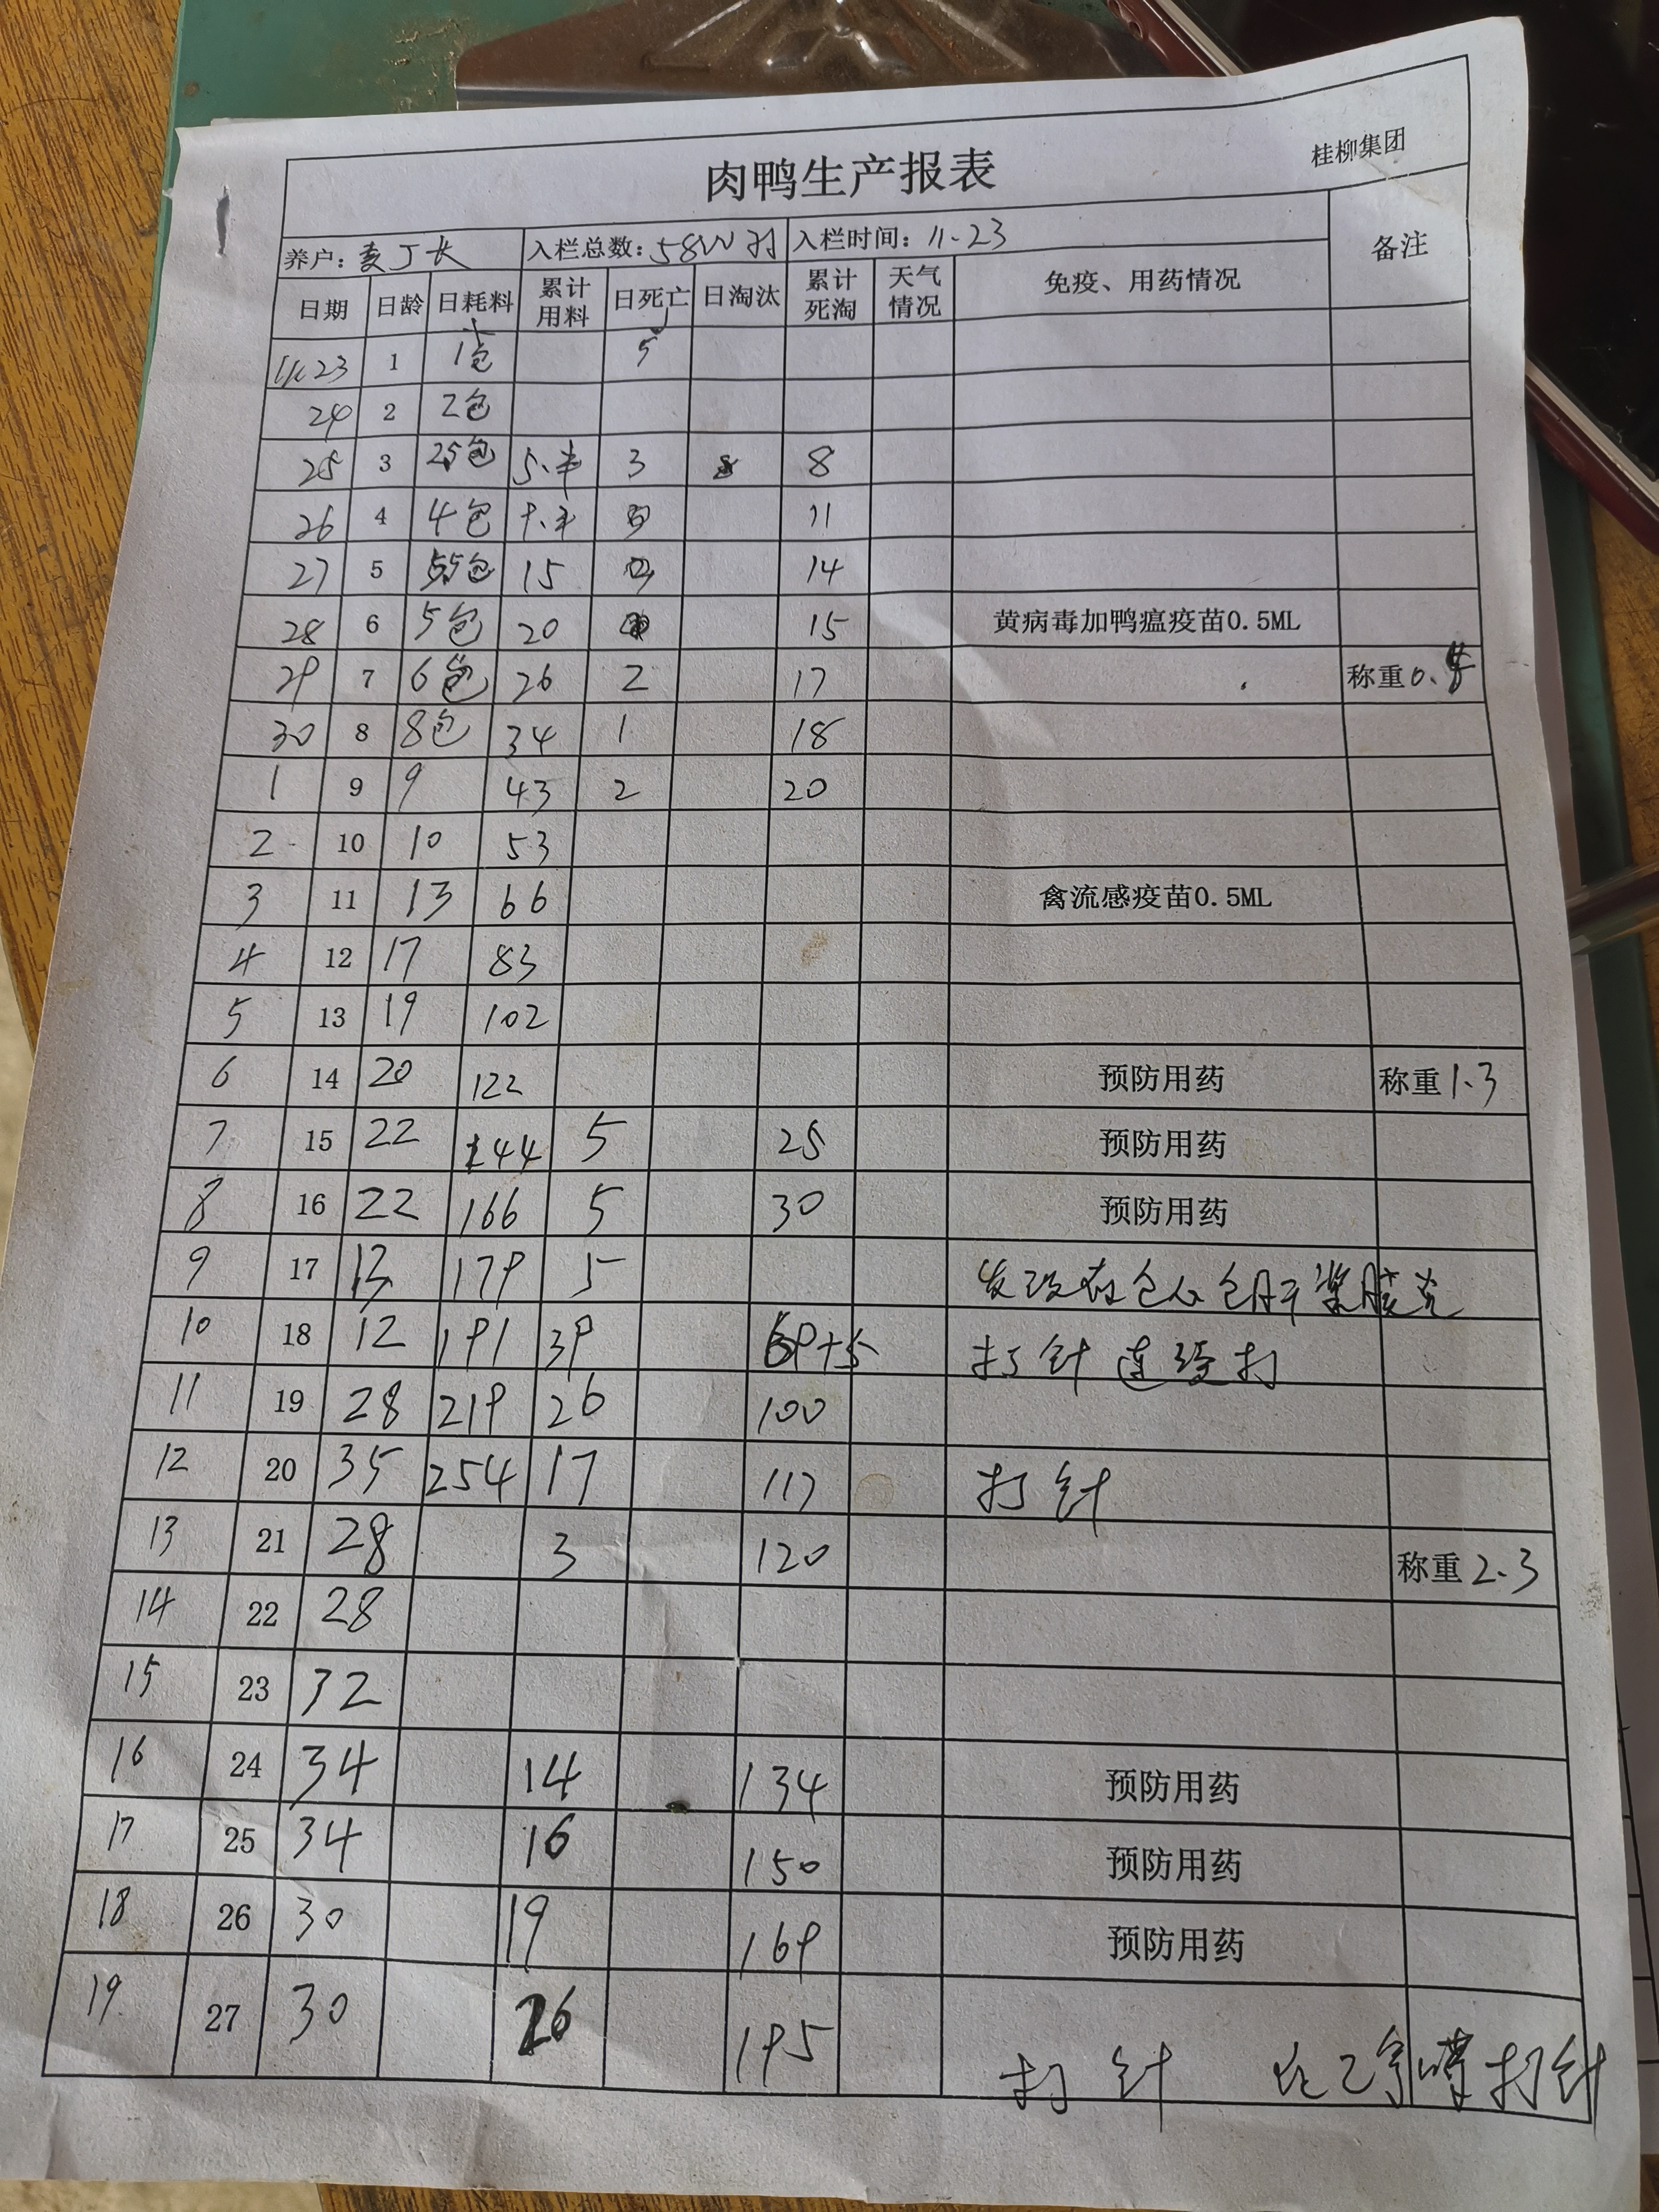 肉鸭生产报表 桂柳集团
养户: 入栏总数: 入栏时间: 11.23 备注
日期 日龄 日耗料 累计用料 日死亡 日淘汰 累计死淘 天气情况 免疫、用药情况
23 1 1包 5
24 2 2包
25 3 5.半 3 8
26 4 4包 9.半 11
27 5 15 14
28 6 5包 20 15 黄病毒加鸭瘟疫苗0.5ML
29 7 6包 26 2 17 称重
30 8 8包 34 1 18
1 9 9 43 2 20
2 10 10 53
3 11 13 66 禽流感疫苗0.5ML
4 12 17 83
5 13 19 102
6 14 20 122 预防用药 称重1.3
7 15 22 144 5 25 预防用药
8 16 22 166 5 30 预防用药
9 17 13 179 5 包心包肝浆膜炎
10 18 12 191 39 69+5 打针连续打
11 19 28 219 26 100
12 20 35 254 17 117 打针
13 21 28 3 120 称重2.3
14 22 28
15 23 32
16 24 34 14 134 预防用药
17 25 34 16 150 预防用药
18 26 30 19 169 预防用药
19 27 30 26 195 打针 打针